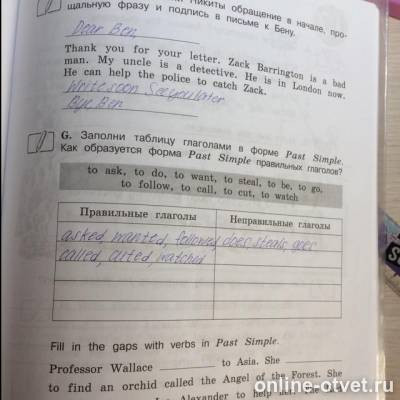 Никиты обращение в начале, про-
щальную фразу и подпись в письме к Бену.
Dear Ben
Thank you for your letter. Zack Barrington is a bad
man. My uncle is a detective. He is in London now.
He can help the police to catch Zack.
Write soon See you later
Bye Ben
G. Заполни таблицу глаголами в форме Past Simple.
Как образуется форма Past Simple правильных глаголов?
to ask, to do, to want, to steal, to be, to go,
to follow, to call, to cut, to watch
Правильные глаголы Неправильные глаголы
asked, wanted, followed, does, steals, goes
called, cuted, watched
Fill in the gaps with verbs in Past Simple.
Professor Wallace to Asia. She
to find an orchid called the Angel of the Forest. She
Alexander to help her. The
online-otvet.ru